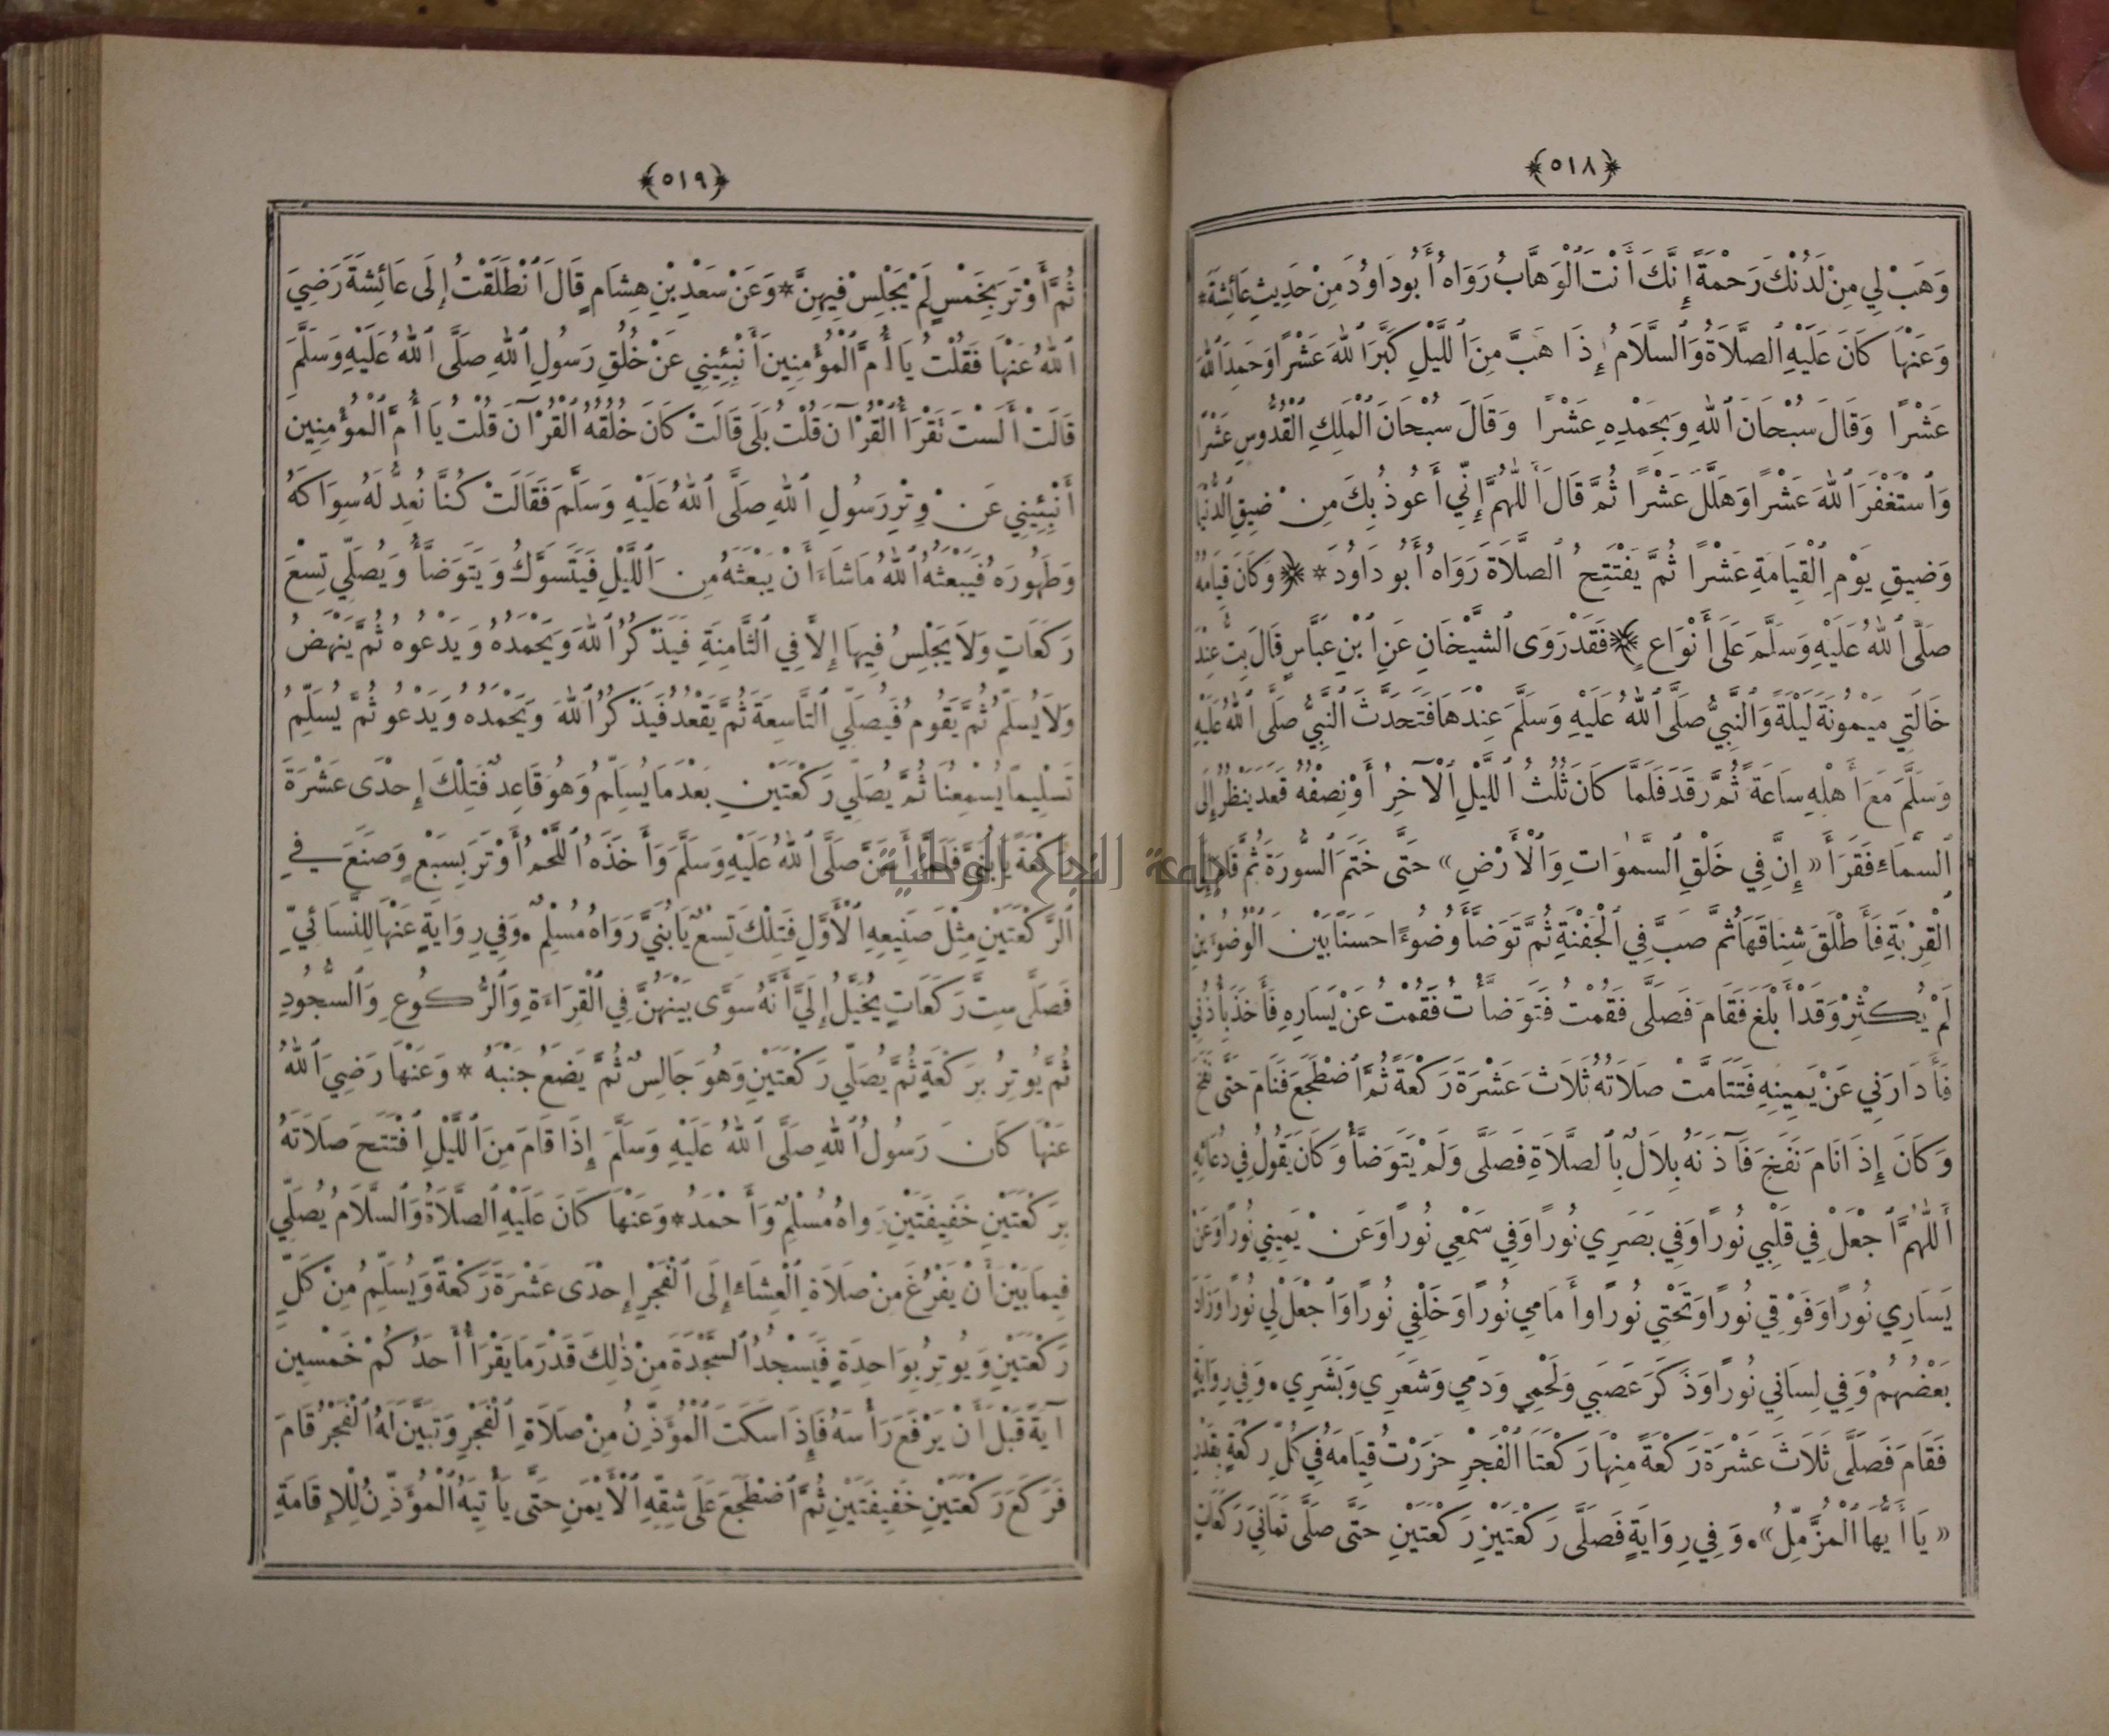 ﴿٥١٨﴾
وَهَبْ لِي مِنْ لَدُنْكَ رَحْمَةً إِنَّكَ أَنْتَ ٱلْوَهَّابُ رَوَاهُ أَبُو دَاوُدَ مِنْ حَدِيثِ عَائِشَةَ *
وَعَنْهَا كَانَ عَلَيْهِ ٱلصَّلَاةُ وَٱلسَّلَامُ إِذَا هَبَّ مِنَ ٱللَّيْلِ كَبَّرَ ٱللهَ عَشْرًا وَحَمِدَ ٱللهَ
عَشْرًا وَقَالَ سُبْحَانَ ٱللهِ وَبِحَمْدِهِ عَشْرًا وَقَالَ سُبْحَانَ ٱلْمَلِكِ ٱلْقُدُّوسِ عَشْرًا
وَٱسْتَغْفَرَ ٱللهَ عَشْرًا وَهَلَّلَ عَشْرًا ثُمَّ قَالَ أَللَّهُمَّ إِنِّي أَعُوذُ بِكَ مِنْ ضِيقِ ٱلدُّنْيَا
وَضِيقِ يَوْمِ ٱلْقِيَامَةِ عَشْرًا ثُمَّ يَفْتَتِحُ ٱلصَّلَاةَ رَوَاهُ أَبُو دَاوُدَ * ﴿ وَكَانَ قِيَامُهُ
صَلَّى ٱللهُ عَلَيْهِ وَسَلَّمَ عَلَى أَنْوَاعٍ ﴾ فَقَدْ رَوَى ٱلشَّيْخَانِ عَنِ ٱبْنِ عَبَّاسٍ قَالَ بِتُّ عِنْدَ
خَالَتِي مَيْمُونَةَ لَيْلَةً وَٱلنَّبِيُّ صَلَّى ٱللهُ عَلَيْهِ وَسَلَّمَ عِنْدَهَا فَتَحَدَّثَ ٱلنَّبِيُّ صَلَّى ٱللهُ عَلَيْهِ
وَسَلَّمَ مَعَ أَهْلِهِ سَاعَةً ثُمَّ رَقَدَ فَلَمَّا كَانَ ثُلُثُ ٱللَّيْلِ ٱلْآخِرُ أَوْ نِصْفُهُ قَعَدَ يَنْظُرُ إِلَى
ٱلسَّمَاءِ فَقَرَأَ « إِنَّ فِي خَلْقِ ٱلسَّمٰوَاتِ وَٱلْأَرْضِ » حَتَّى خَتَمَ ٱلسُّورَةَ ثُمَّ قَامَ إِلَى
ٱلْقِرْبَةِ فَأَطْلَقَ شِنَاقَهَا ثُمَّ صَبَّ فِي ٱلْجَفْنَةِ ثُمَّ تَوَضَّأَ وُضُوءًا حَسَنًا بَيْنَ ٱلْوُضُوءَيْنِ
لَمْ يُكْثِرْ وَقَدْ أَبْلَغَ فَقَامَ فَصَلَّى فَقُمْتُ فَتَوَضَّأْتُ فَقُمْتُ عَنْ يَسَارِهِ فَأَخَذَ بِأُذُنِي
فَأَدَارَنِي عَنْ يَمِينِهِ فَتَتَامَّتْ صَلَاتُهُ ثَلَاثَ عَشْرَةَ رَكْعَةً ثُمَّ ٱضْطَجَعَ فَنَامَ حَتَّى نَفَخَ
وَكَانَ إِذَا نَامَ نَفَخَ فَآذَنَهُ بِلَالٌ بِٱلصَّلَاةِ فَصَلَّى وَلَمْ يَتَوَضَّأْ وَكَانَ يَقُولُ فِي دُعَائِهِ
أَللَّهُمَّ ٱجْعَلْ فِي قَلْبِي نُورًا وَفِي بَصَرِي نُورًا وَفِي سَمْعِي نُورًا وَعَنْ يَمِينِي نُورًا وَعَنْ
يَسَارِي نُورًا وَفَوْقِي نُورًا وَتَحْتِي نُورًا وأَمَامِي نُورًا وَخَلْفِي نُورًا وَٱجْعَلْ لِي نُورًا وَزَادَ
بَعْضُهُمْ وَفِي لِسَانِي نُورًا وَذَكَرَ عَصَبِي وَلَحْمِي وَدَمِي وَشَعَرِي وَبَشَرِي . وَفِي رِوَايَةٍ
فَقَامَ فَصَلَّى ثَلَاثَ عَشْرَةَ رَكْعَةً مِنْهَا رَكْعَتَا ٱلْفَجْرِ حَزَرْتُ قِيَامَهُ فِي كُلِّ رَكْعَةٍ بِقَدْرِ
« يَا أَيُّهَا ٱلْمُزَّمِّلُ » . وَفِي رِوَايَةٍ فَصَلَّى رَكْعَتَيْنِ رَكْعَتَيْنِ حَتَّى صَلَّى ثَمَانِيَ رَكَعَاتٍ
﴿٥١٩﴾
ثُمَّ أَوْتَرَ بِخَمْسٍ لَمْ يَجْلِسْ فِيهِنَّ * وَعَنْ سَعْدِ بْنِ هِشَامٍ قَالَ ٱنْطَلَقْتُ إِلَى عَائِشَةَ رَضِيَ
ٱللهُ عَنْهَا فَقُلْتُ يَا أُمَّ ٱلْمُؤْمِنِينَ أَنْبِئِينِي عَنْ خُلُقِ رَسُولِ ٱللهِ صَلَّى ٱللهُ عَلَيْهِ وَسَلَّمَ
قَالَتْ أَلَسْتَ تَقْرَأُ ٱلْقُرْآنَ قُلْتُ بَلَى قَالَتْ كَانَ خُلُقُهُ ٱلْقُرْآنَ قُلْتُ يَا أُمَّ ٱلْمُؤْمِنِينَ
أَنْبِئِينِي عَنْ وِتْرِ رَسُولِ ٱللهِ صَلَّى ٱللهُ عَلَيْهِ وَسَلَّمَ فَقَالَتْ كُنَّا نُعِدُّ لَهُ سِوَاكَهُ
وَطَهُورَهُ فَيَبْعَثُهُ ٱللهُ مَا شَاءَ أَنْ يَبْعَثَهُ مِنَ ٱللَّيْلِ فَيَتَسَوَّكُ وَيَتَوَضَّأُ وَيُصَلِّي تِسْعَ
رَكَعَاتٍ وَلَا يَجْلِسُ فِيهَا إِلَّا فِي ٱلثَّامِنَةِ فَيَذْكُرُ ٱللهَ وَيَحْمَدُهُ وَيَدْعُوهُ ثُمَّ يَنْهَضُ
وَلَا يُسَلِّمُ ثُمَّ يَقُومُ فَيُصَلِّي ٱلتَّاسِعَةَ ثُمَّ يَقْعُدُ فَيَذْكُرُ ٱللهَ وَيَحْمَدُهُ وَيَدْعُو ثُمَّ يُسَلِّمُ
تَسْلِيمًا يُسْمِعُنَا ثُمَّ يُصَلِّي رَكْعَتَيْنِ بَعْدَمَا يُسَلِّمُ وَهُوَ قَاعِدٌ فَتِلْكَ إِحْدَى عَشْرَةَ
رَكْعَةً يَا بُنَيَّ فَلَمَّا أَسَنَّ صَلَّى ٱللهُ عَلَيْهِ وَسَلَّمَ وَأَخَذَهُ ٱللَّحْمُ أَوْتَرَ بِسَبْعٍ وَصَنَعَ فِي
ٱلرَّكْعَتَيْنِ مِثْلَ صَنِيعِهِ ٱلْأَوَّلِ فَتِلْكَ تِسْعٌ يَا بُنَيَّ رَوَاهُ مُسْلِمٌ . وَفِي رِوَايَةٍ عَنْهَا لِلنَّسَائِيِّ
فَصَلَّى سِتَّ رَكَعَاتٍ يُخَيَّلُ إِلَيَّ أَنَّهُ سَوَّى بَيْنَهُنَّ فِي ٱلْقِرَاءَةِ وَٱلرُّكُوعِ وَٱلسُّجُودِ
ثُمَّ يُوتِرُ بِرَكْعَةٍ ثُمَّ يُصَلِّي رَكْعَتَيْنِ وَهُوَ جَالِسٌ ثُمَّ يَضَعُ جَنْبَهُ * وَعَنْهَا رَضِيَ ٱللهُ
عَنْهَا كَانَ رَسُولُ ٱللهِ صَلَّى ٱللهُ عَلَيْهِ وَسَلَّمَ إِذَا قَامَ مِنَ ٱللَّيْلِ ٱفْتَتَحَ صَلَاتَهُ
بِرَكْعَتَيْنِ خَفِيفَتَيْنِ رَوَاهُ مُسْلِمٌ وَأَحْمَدُ * وَعَنْهَا كَانَ عَلَيْهِ ٱلصَّلَاةُ وَٱلسَّلَامُ يُصَلِّي
فِيمَا بَيْنَ أَنْ يَفْرُغَ مِنْ صَلَاةِ ٱلْعِشَاءِ إِلَى ٱلْفَجْرِ إِحْدَى عَشْرَةَ رَكْعَةً وَيُسَلِّمُ مِنْ كُلِّ
رَكْعَتَيْنِ وَيُوتِرُ بِوَاحِدَةٍ فَيَسْجُدُ ٱلسَّجْدَةَ مِنْ ذٰلِكَ قَدْرَ مَا يَقْرَأُ أَحَدُكُمْ خَمْسِينَ
آيَةً قَبْلَ أَنْ يَرْفَعَ رَأْسَهُ فَإِذَا سَكَتَ ٱلْمُؤَذِّنُ مِنْ صَلَاةِ ٱلْفَجْرِ وَتَبَيَّنَ لَهُ ٱلْفَجْرُ قَامَ
فَرَكَعَ رَكْعَتَيْنِ خَفِيفَتَيْنِ ثُمَّ ٱضْطَجَعَ عَلَى شِقِّهِ ٱلْأَيْمَنِ حَتَّى يَأْتِيَهُ ٱلْمُؤَذِّنُ لِلْإِقَامَةِ
جامعة النجاح الوطنية